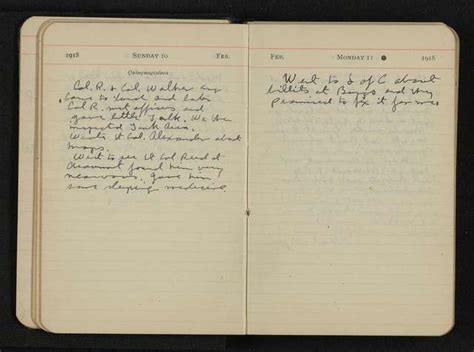 1918 SUNDAY 10 FEB.
Quinquagesima
Col. R. & Col. Walker
came to lunch and later
Col R. met officers and
gave little talk. We then
inspected Tank Area.
Wrote Lt Col. Alexander about
maps.
Went to see Lt Col Reed at
found him very
nervous. Gave him
some sleeping medicine.
FEB. MONDAY 11 1918
Went to S of C. about
billets at and they
promised to fix it for me